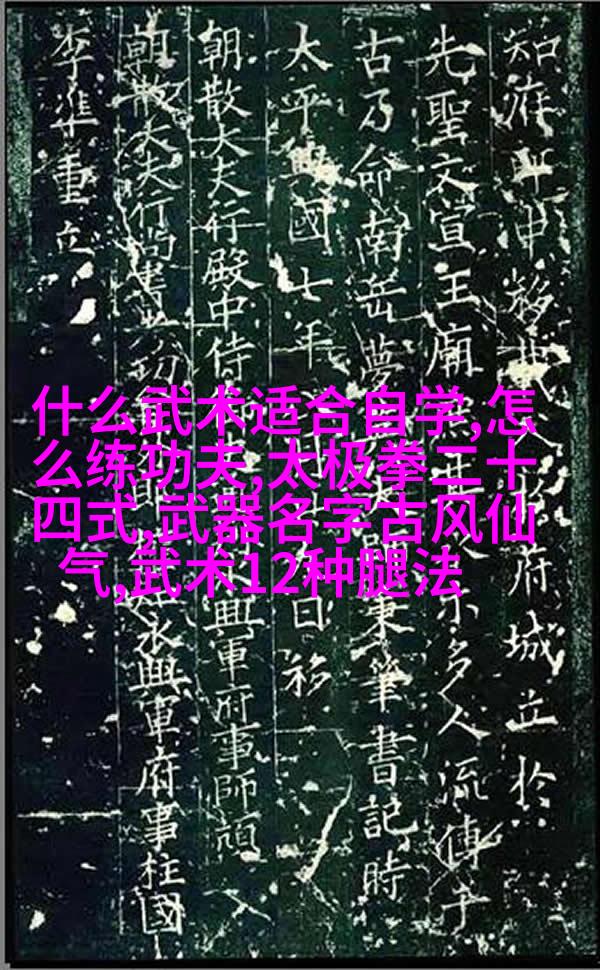 什么武术适合自学,怎
么练功夫,太极拳二十
四式,武器名字古风仙
气,武术12种腿法
知府移府城立於
先聖文宣王廟示多人流傳千
古乃命南岳夢秉筆書記時
太平興國七年日移
朝散大夫行殿中侍興軍府事師頏
朝散大夫行尚書永興軍府事柱國
李準重立